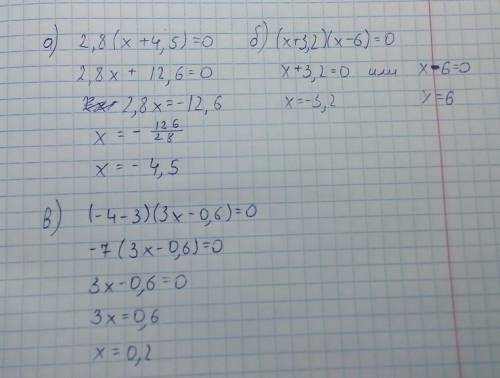 а) 2,8(x+4,5)=0
2,8x + 12,6=0
2,8x=-12,6
x = - 126/28
x = - 4,5
б) (x+3,2)(x-6)=0
x+3,2=0 или x-6=0
x=-3,2 x=6
в) (-4-3)(3x-0,6)=0
-7(3x-0,6)=0
3x-0,6=0
3x=0,6
x=0,2